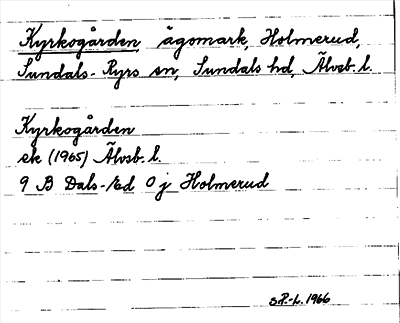 Kyrkogården, ägomark, Holmerud,
Sundals-Ryrs sn, Sundals hd, Älvsb. l.
Kyrkogården
ek (1965) Älvsb. l.
9 B Dals-Ed 0 j Holmerud
S.P.-L. 1966